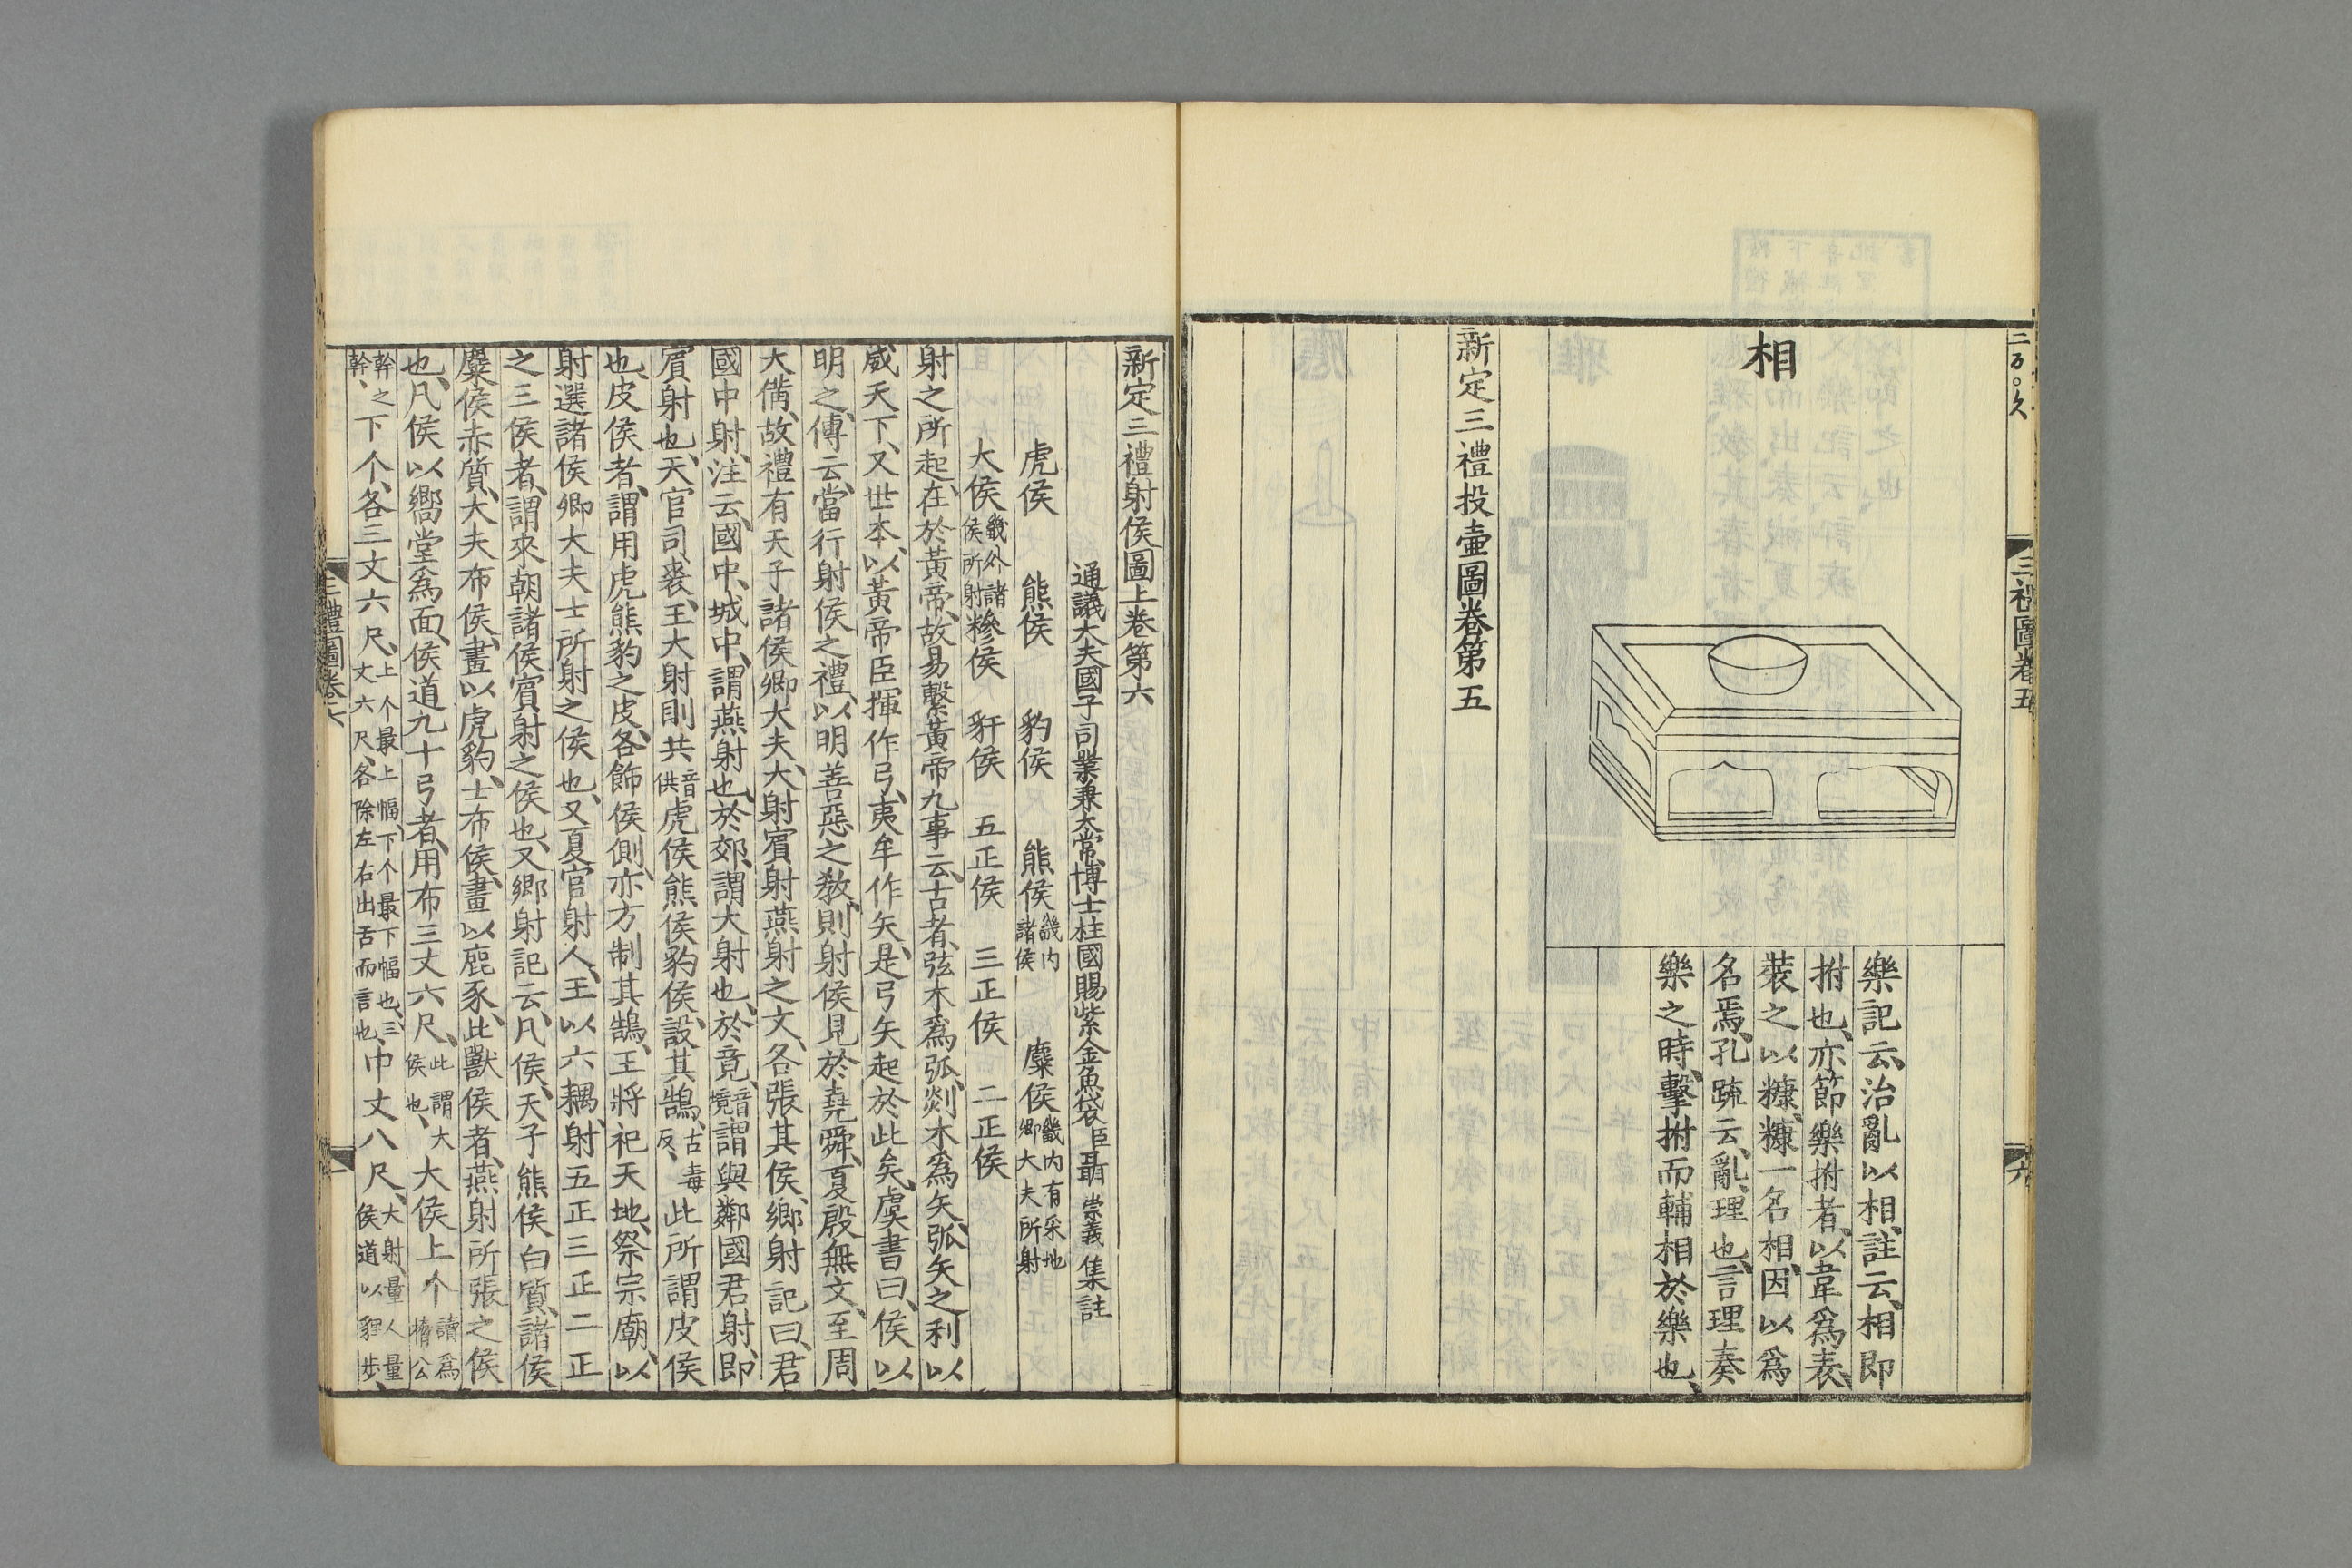 相
樂記云、治亂以相、註云、相即
拊也、亦節樂拊者、以韋爲表、
裝之以糠、糠一名相、因以爲
名焉、孔疏云、亂、理也、言理奏
樂之時、擊拊而輔相於樂也、
新定三禮投壷圖卷第五
新定三禮射侯圖上卷第六
通議大夫國子司業兼太常博士柱國賜紫金魚袋臣聶崇義集註
虎侯 熊侯 豹侯 熊侯畿内諸侯 麋侯畿内有采地卿大夫所射
大侯畿外諸侯所射 糝侯 豻侯 五正侯 三正侯 二正侯
射之所起、在於黃帝、故易繫黃帝九事云、古者、弦木爲弧、剡木爲矢、弧矢之利以
威天下、又世本、以黃帝臣揮作弓、夷牟作矢、是弓矢起於此矣、虞書曰、侯以
明之、傳云、當行射侯之禮、以明善惡之教、則射侯見於堯舜、夏殷無文、至周
大備、故禮有天子諸侯卿大夫、大射賓射燕射之文、各張其侯、鄉射記曰、君
國中射、注云、國中、城中、謂燕射也、於郊、謂大射也、於竟、音境謂與鄰國君射、即
賓射也、天官司裘、王大射則共音供虎侯熊侯豹侯、設其鵠、古毒反、此所謂皮侯
也、皮侯者、謂用虎熊豹之皮、各飾侯側、亦方制其鵠、王將祀天地、祭宗廟、以
射選諸侯卿大夫士所射之侯也、又夏官射人、王以六耦、射五正三正二正
之三侯者、謂來朝諸侯賓射之侯也、又鄉射記云、凡侯、天子熊侯白質、諸侯
麋侯赤質、大夫布侯、畫以虎豹、士布侯、畫以鹿豕、此獸侯者、燕射所張之侯
也、凡侯以嚮堂爲面、侯道九十弓者、用布三丈六尺、此謂大侯也、大侯上个讀爲㯺公
幹、之幹、下个、各三丈六尺、上个最上幅、下个最下幅也、三丈六尺、各除左右出舌而言也、中丈八尺、大射、量人量侯道以貍步、
三禮圖卷五
六
三禮圖卷六
一